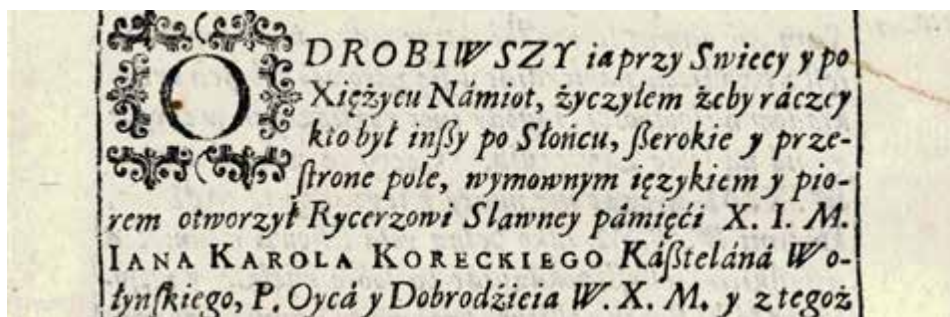 ODROBIWSZY ia przy Swiecy y po
Xiężycu Námiot, życzyłem żeby ráczey
kto był inßy po Słońcu, ßerokie y prze-
ſtrone pole, wymownym ięzykiem y pio-
rem otworzył Rycerzowi Slawney pámięći X. I. M.
IANA KAROLA KORECKIEGO Káßteláná Wo-
łynſkiego, P. Oycá y Dobrodźieia W. X. M. y z tegoż